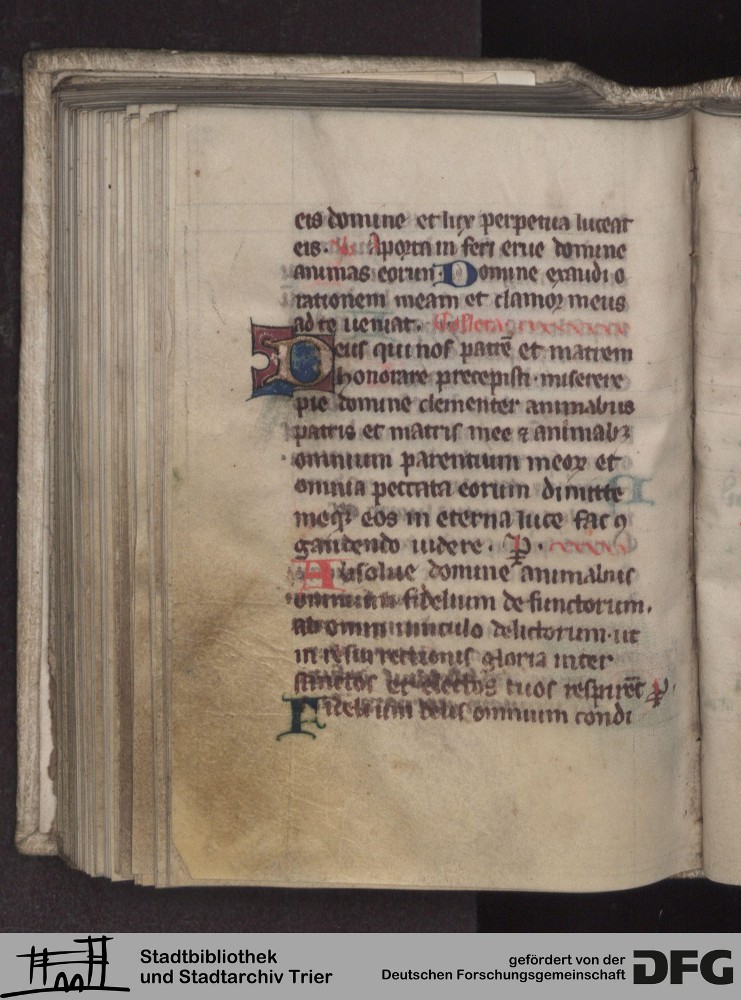 eis domine et lux perpetua luceat
eis. Aporta in feri erue domine
animas eorum Domine exaudi o
rationem meam et clamor meus
ad te ueniat. Collecta
Deus qui nos patrē et matrem
honorare precepisti miserere
pie domine clementer animabus
patris et matris mee ⁊ animabꝫ
omnium parentium meoꝝ et
omnia peccata eorum dimitte
meqꝫ eos in eterna luce fac ꝯ
gaudendo uidere.
Absolue domine animabus
omnium fidelium defunctorum.
ab omni uinculo delictorum ut
in resurrectionis gloria inter
sanctos et electos tuos respirēt
Fidelium deus omnium condi
Stadtbibliothek
und Stadtarchiv Trier
gefördert von der
Deutschen Forschungsgemeinschaft
DFG